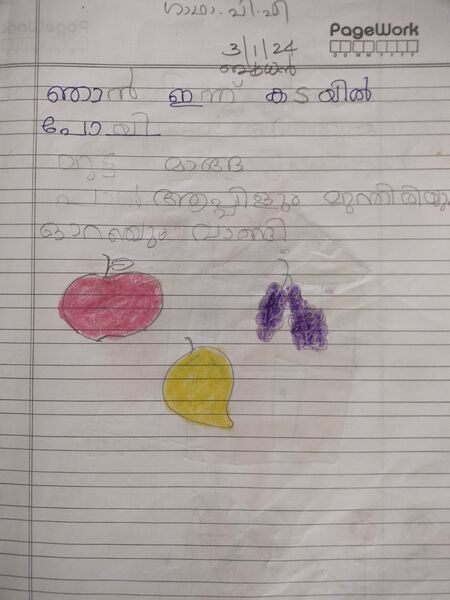 ഗാഥാ.പി.പി
PageWork
3/1/24
ബുധൻ
ഞാൻ ഇന്ന് കടയിൽ
പോയി
മുട്ട മാങ്ങ
പാൽ ആപ്പിളും മുന്തിരിയു
ഓറഞ്ചും വാങ്ങി